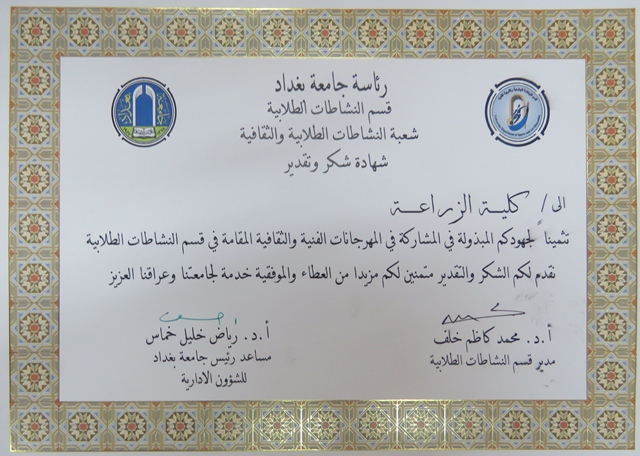 رئاسة جامعة بغداد
قسم النشاطات الطلابية
شعبة النشاطات الطلابية والثقافية
شهادة شكر وتقدير
الى / كلية الزراعة
تثميناً لجهودكم المبذولة في المشاركة في المهرجانات الفنية والثقافية المقامة في قسم النشاطات الطلابية
نقدم لكم الشكر والتقدير متمنين لكم مزيدا من العطاء والموفقية خدمة لجامعتنا وعراقنا العزيز
أ.د. محمد كاظم خلف
مدير قسم النشاطات الطلابية
أ.د. رياض خليل خماس
مساعد رئيس جامعة بغداد
للشؤون الادارية